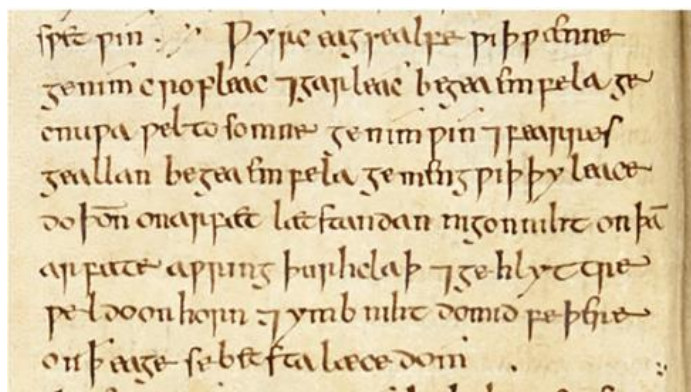 spet pin . ⁊ Ƿyrc eagsealfe ƿiþ ƿænne
genim cropleac ⁊ garleac begea emfela ge
cnuƿa ƿel tosomne genim ƿin ⁊ fearres
geallan begea emfela gemeng ƿiþ þy leace
do þoñ on arfæt læt standan nigon niht on þā
arfæte aƿring þurh claþ ⁊ gehlyttre
ƿel do on horn ⁊ ymb niht do mid feþre
on ꝥ eage se betsta læcedom .